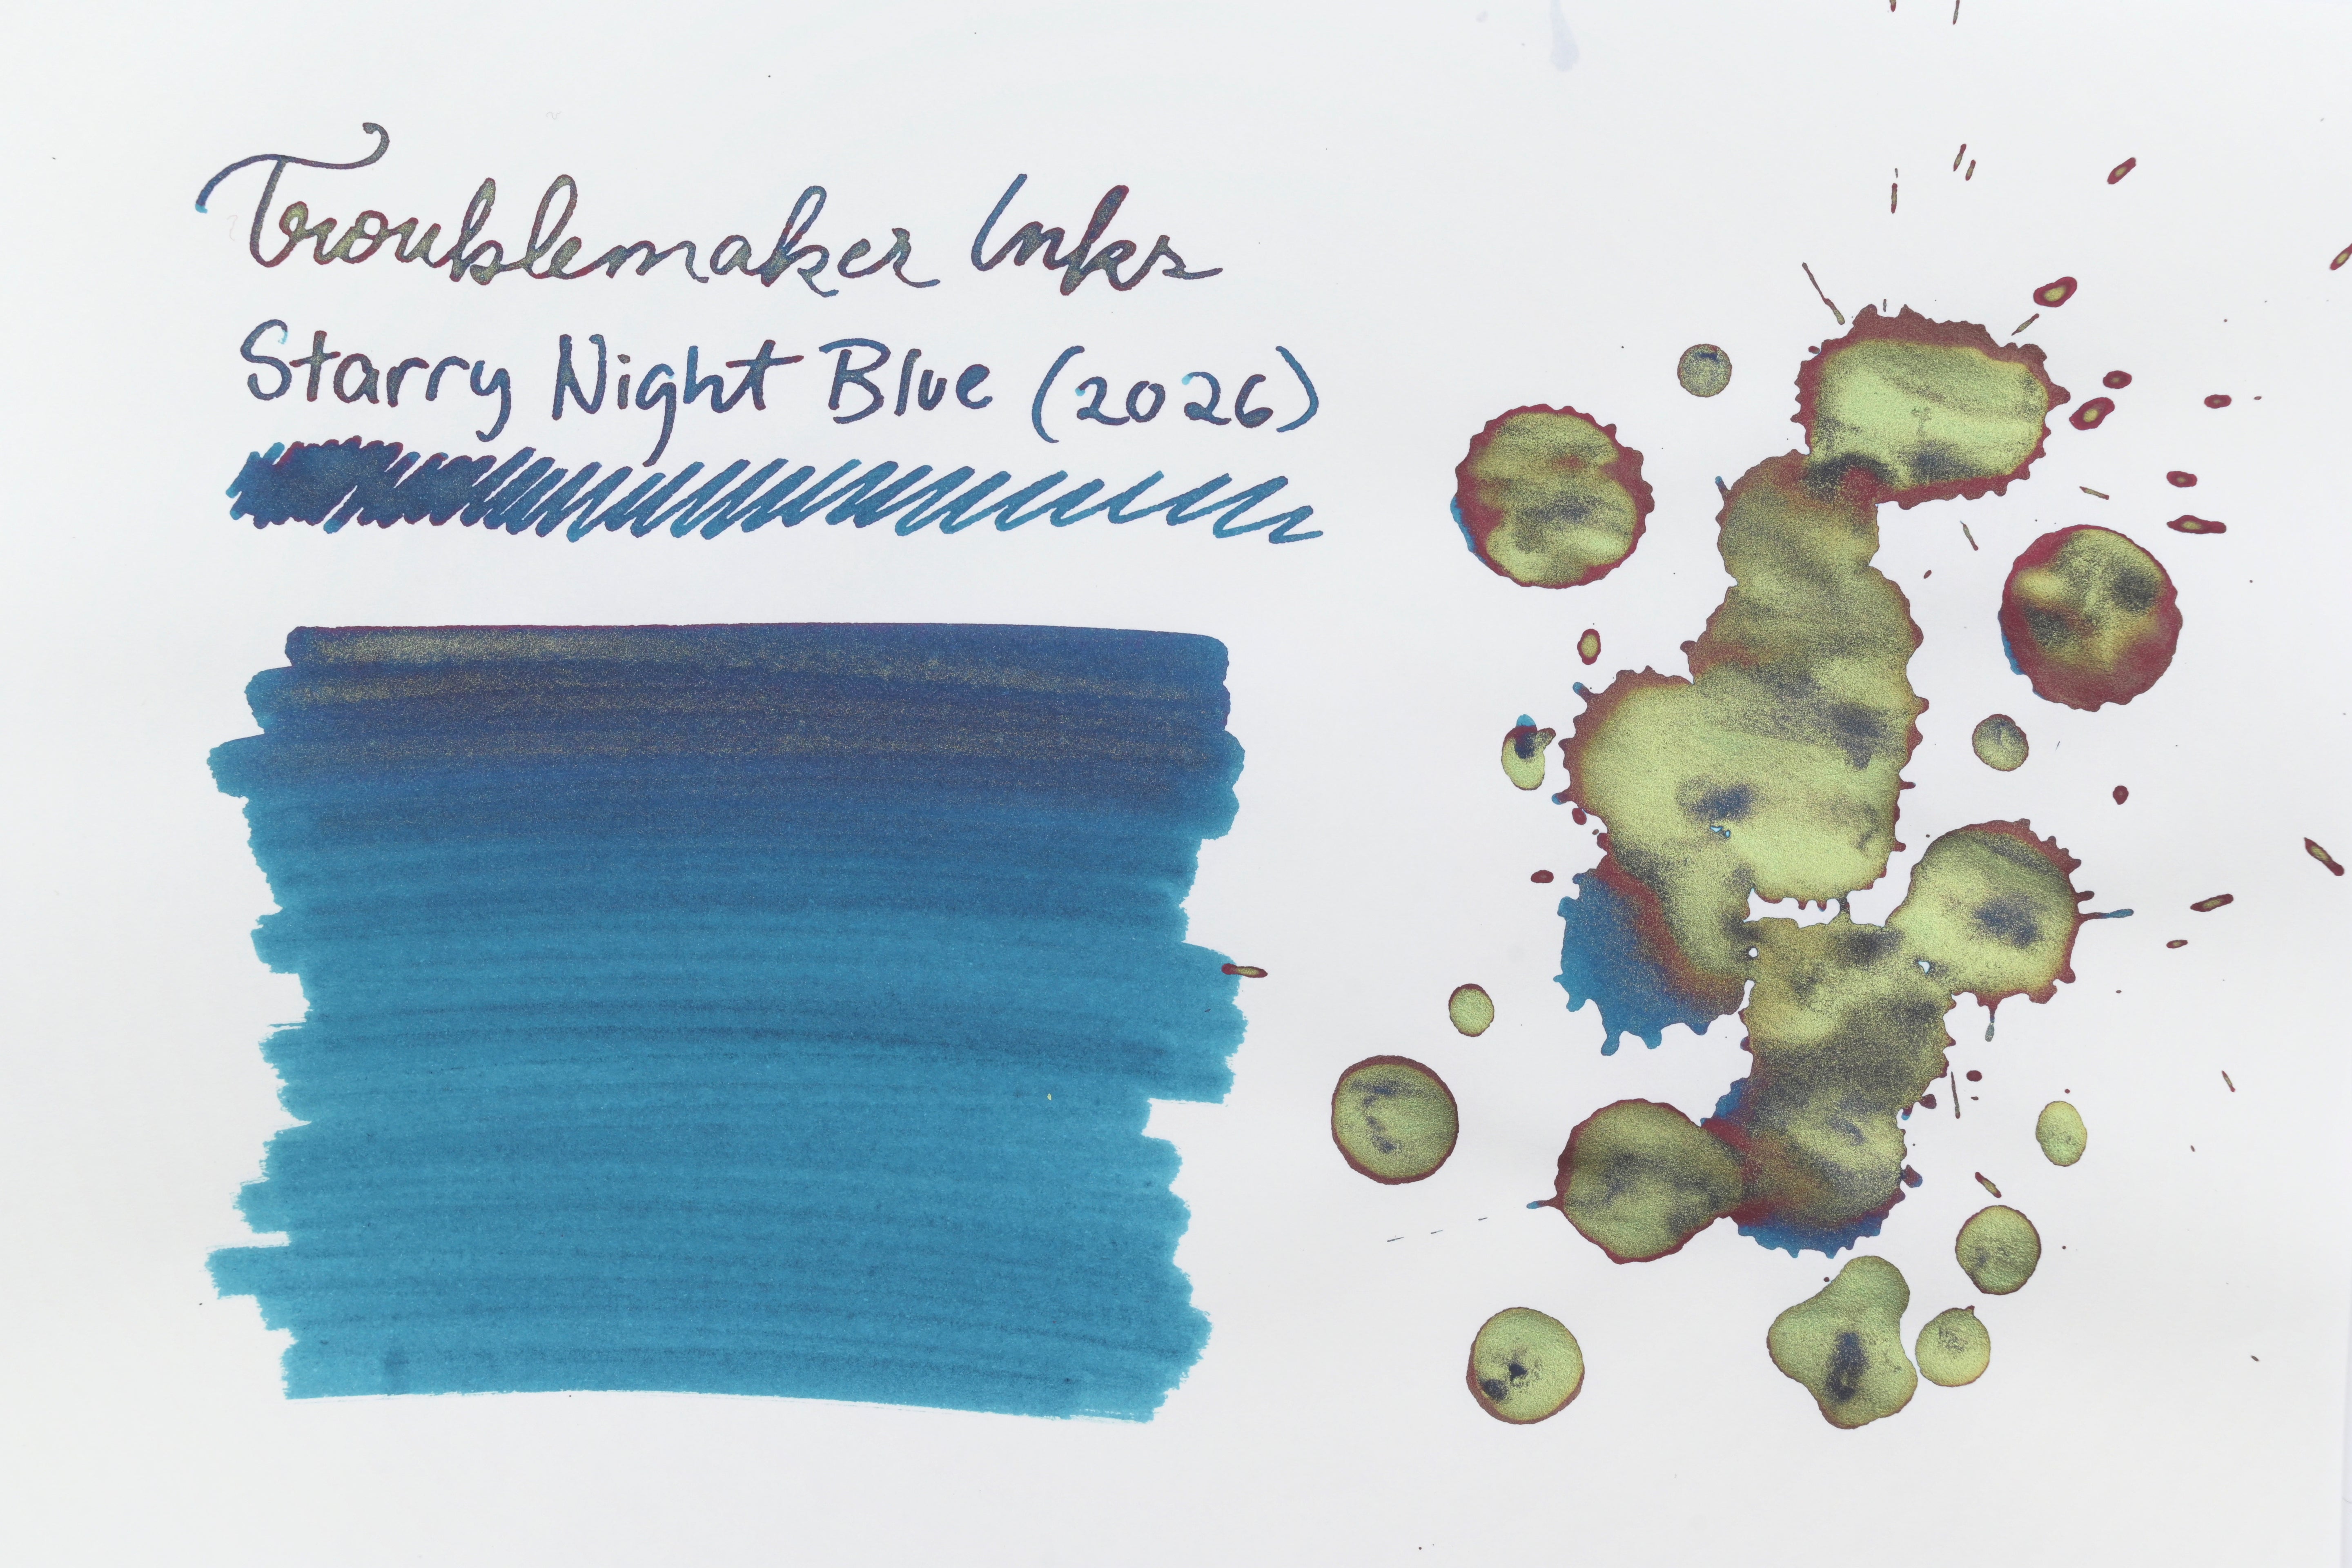 Troublemaker Inks
Starry Night Blue (2026)